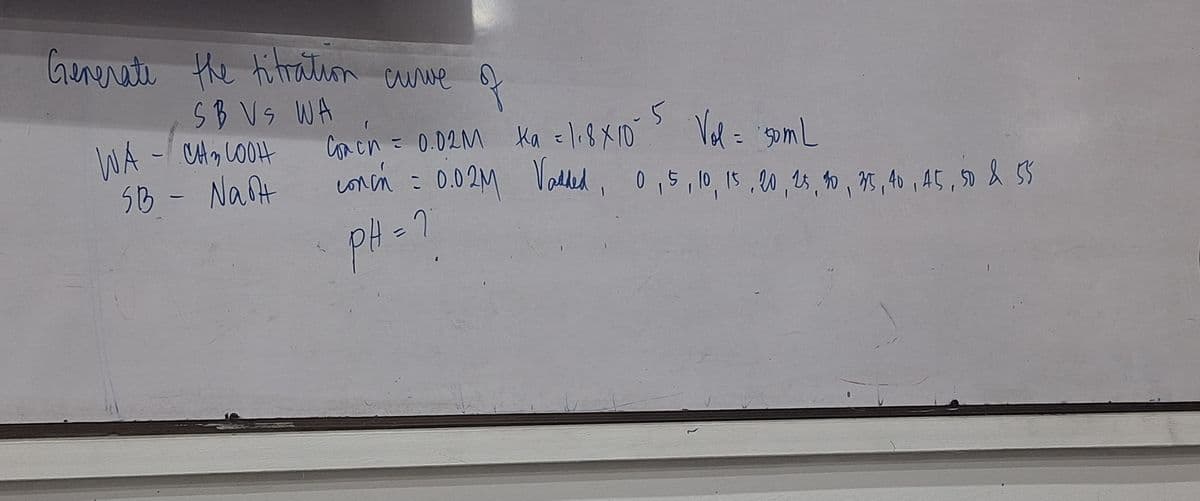 Generate the titration curve of
SB Vs WA
WA - CH3COOH Concn = 0.02M Ka = 1.8 X 10-5 Vol = 50mL
SB - NaOH concn = 0.02M Vadded, 0, 5, 10, 15, 20, 25, 30, 35, 40, 45, 50 & 55
pH = ?